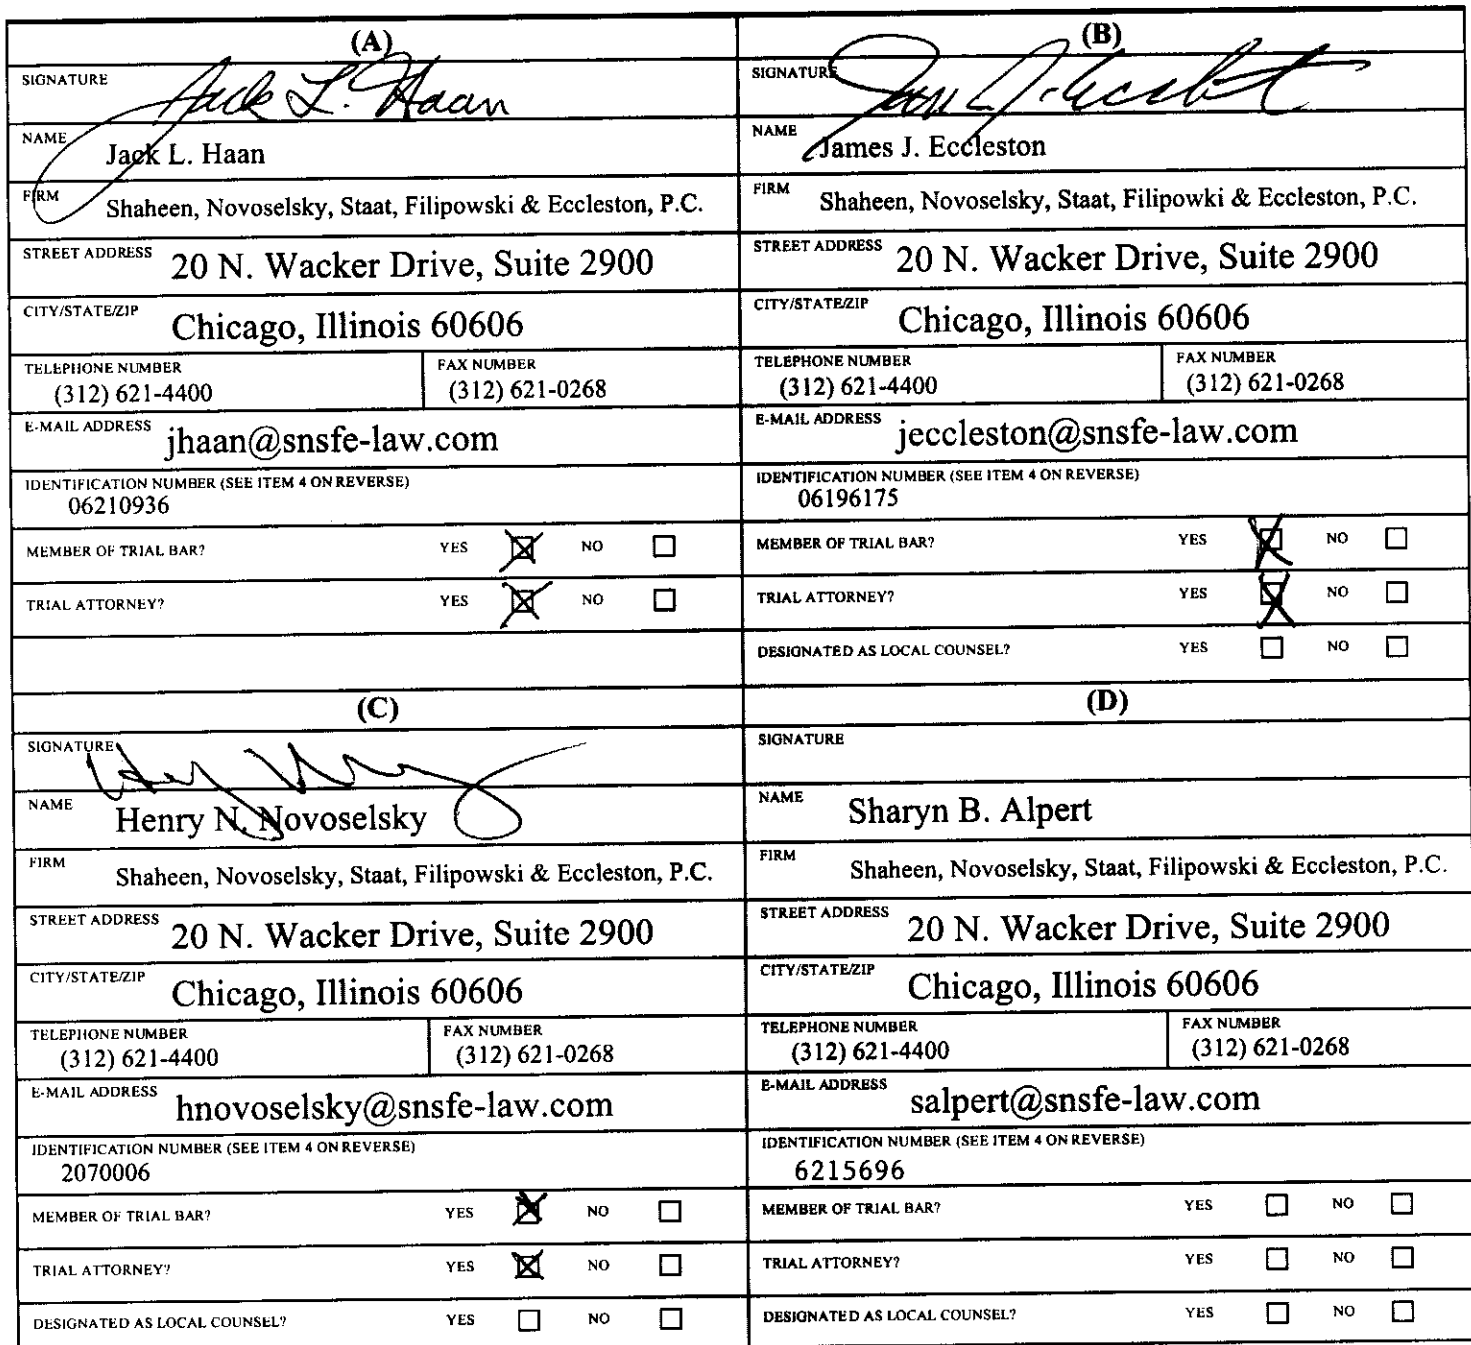 (A)
SIGNATURE Jack L. Haan
NAME Jack L. Haan
FIRM Shaheen, Novoselsky, Staat, Filipowski & Eccleston, P.C.
STREET ADDRESS 20 N. Wacker Drive, Suite 2900
CITY/STATE/ZIP Chicago, Illinois 60606
TELEPHONE NUMBER (312) 621-4400
FAX NUMBER (312) 621-0268
E-MAIL ADDRESS jhaan@snsfe-law.com
IDENTIFICATION NUMBER (SEE ITEM 4 ON REVERSE)
06210936
MEMBER OF TRIAL BAR? YES NO
TRIAL ATTORNEY? YES NO
(B)
SIGNATURE
NAME James J. Eccleston
FIRM Shaheen, Novoselsky, Staat, Filipowki & Eccleston, P.C.
STREET ADDRESS 20 N. Wacker Drive, Suite 2900
CITY/STATE/ZIP Chicago, Illinois 60606
TELEPHONE NUMBER (312) 621-4400
FAX NUMBER (312) 621-0268
E-MAIL ADDRESS jeccleston@snsfe-law.com
IDENTIFICATION NUMBER (SEE ITEM 4 ON REVERSE)
06196175
MEMBER OF TRIAL BAR? YES NO
TRIAL ATTORNEY? YES NO
DESIGNATED AS LOCAL COUNSEL? YES NO
(C)
SIGNATURE
NAME Henry N. Novoselsky
FIRM Shaheen, Novoselsky, Staat, Filipowski & Eccleston, P.C.
STREET ADDRESS 20 N. Wacker Drive, Suite 2900
CITY/STATE/ZIP Chicago, Illinois 60606
TELEPHONE NUMBER (312) 621-4400
FAX NUMBER (312) 621-0268
E-MAIL ADDRESS hnovoselsky@snsfe-law.com
IDENTIFICATION NUMBER (SEE ITEM 4 ON REVERSE)
2070006
MEMBER OF TRIAL BAR? YES NO
TRIAL ATTORNEY? YES NO
DESIGNATED AS LOCAL COUNSEL? YES NO
(D)
SIGNATURE
NAME Sharyn B. Alpert
FIRM Shaheen, Novoselsky, Staat, Filipowski & Eccleston, P.C.
STREET ADDRESS 20 N. Wacker Drive, Suite 2900
CITY/STATE/ZIP Chicago, Illinois 60606
TELEPHONE NUMBER (312) 621-4400
FAX NUMBER (312) 621-0268
E-MAIL ADDRESS salpert@snsfe-law.com
IDENTIFICATION NUMBER (SEE ITEM 4 ON REVERSE)
6215696
MEMBER OF TRIAL BAR? YES NO
TRIAL ATTORNEY? YES NO
DESIGNATED AS LOCAL COUNSEL? YES NO